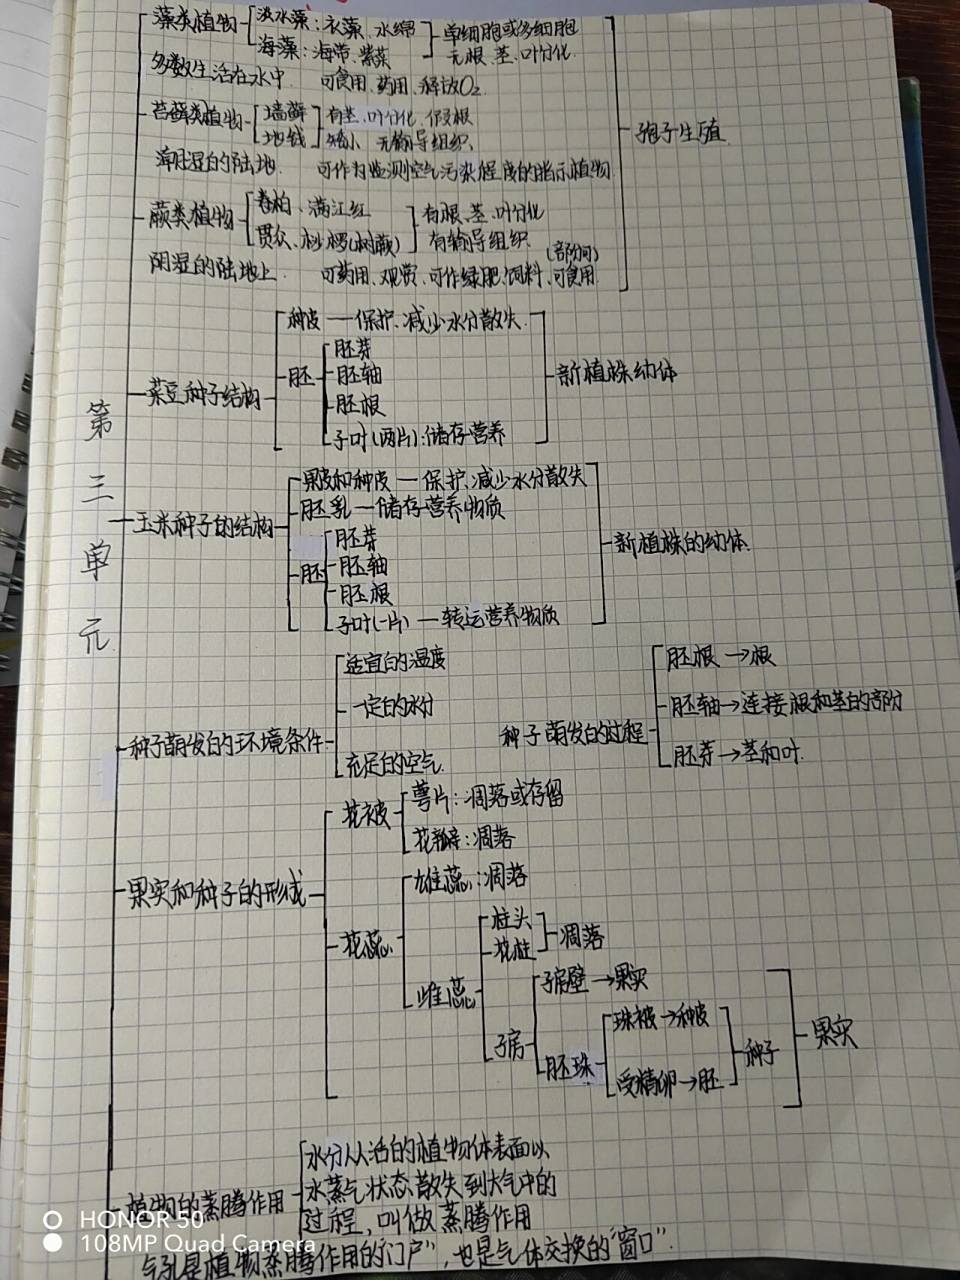 第三单元
藻类植物 淡水藻:衣藻、水绵 单细胞或多细胞
海藻:海带、紫菜 无根、茎、叶分化
多数生活在水中 可食用、药用、释放O₂
苔藓类植物 墙藓 有茎、叶分化、假根
地钱 矮小、无输导组织
阴湿的陆地 可作为监测空气污染程度的指示植物
孢子生殖
蕨类植物 卷柏、满江红 有根、茎、叶分化
贯众、桫椤(树蕨) 有输导组织
阴湿的陆地上 可药用、观赏、可作绿肥、饲料、可食用(部分)
种皮—保护、减少水分散失
菜豆种子结构 胚 胚芽
胚轴 新植株幼体
胚根
子叶(两片):储存营养
果皮和种皮—保护、减少水分散失
玉米种子的结构 胚乳—储存营养物质
胚 胚芽
胚轴 新植株的幼体
胚根
子叶(一片)—转运营养物质
种子萌发的环境条件 适宜的温度
一定的水分
充足的空气
种子萌发的过程 胚根→根
胚轴→连接根和茎的部分
胚芽→茎和叶
果实和种子的形成 花被 萼片:凋落或存留
花瓣:凋落
花蕊 雄蕊:凋落
雌蕊 柱头
花柱 凋落
子房 子房壁→果实
胚珠 珠被→种皮
受精卵→胚 种子 果实
植物的蒸腾作用 水分从活的植物体表面以
水蒸气状态散失到大气中的
过程,叫做蒸腾作用
气孔是植物蒸腾作用的“门户”,也是气体交换的“窗口”.
HONOR 50
108MP Quad Camera